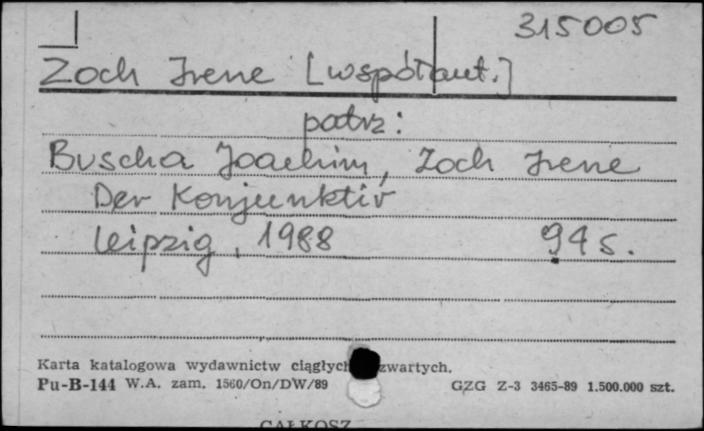 315005
Zoch Irene [współaut.]
patrz:
Buscha Joachim, Zoch Irene
Der Konjunktiv
Leipzig, 1988 94 s.
Karta katalogowa wydawnictw ciągłych zwartych.
Pu-B-144 W.A. zam. 1560/On/DW/89 GZG Z-3 3465-89 1.500.000 szt.